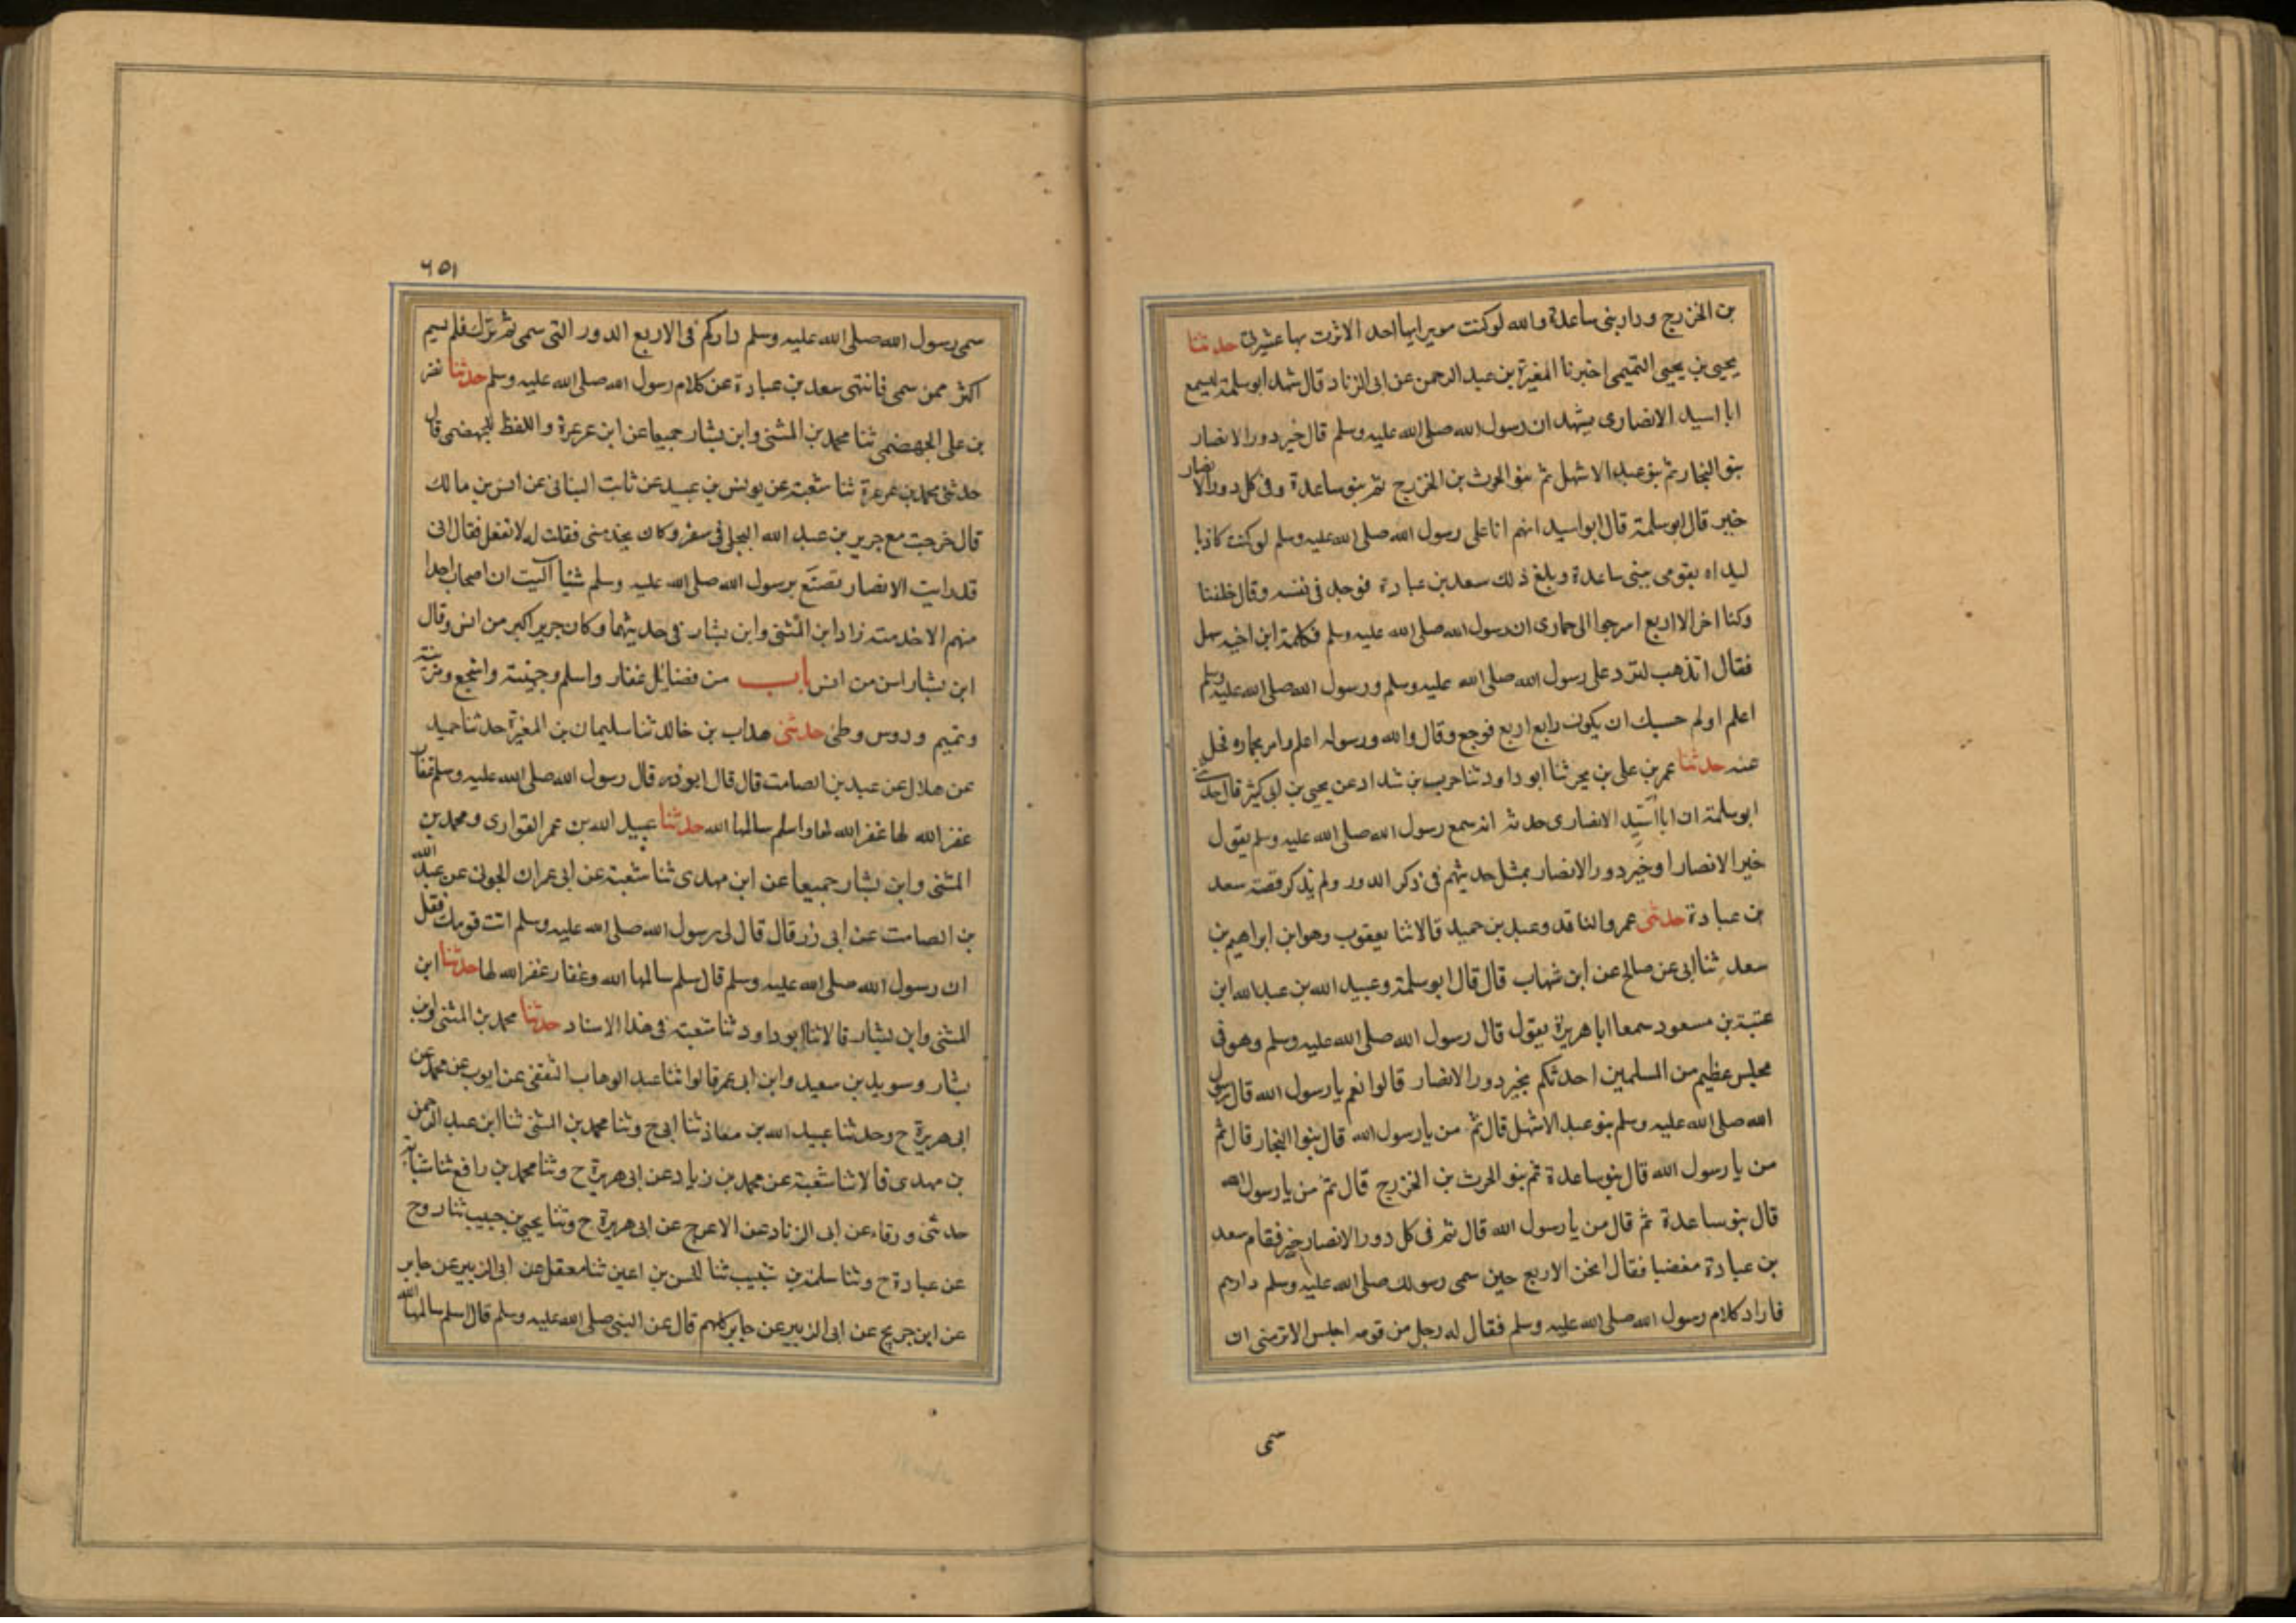 بن الخزرج ودار بنى ساعدة والله لو كنت موثرا بها احد الاثرت بها عشيرتى حدثنا
يحيى بن يحيى التميمى اخبرنا المغيرة بن عبد الرحمن عن ابى الزناد قال شهد ابو سلمة لسمع
ابا اسيد الانصارى يشهد ان رسول الله صلى الله عليه وسلم قال خير دور الانصار
بنو النجار ثم بنو عبد الاشهل ثم بنو الحرث بن الخزرج ثم بنو ساعدة وفى كل دور الانصار
خير قال ابو سلمة قال ابو اسيد اتهم انا على رسول الله صلى الله عليه وسلم لو كنت كاذبا
لبداه بقومى بنى ساعدة وبلغ ذلك سعد بن عبادة فوجد فى نفسه وقال خلفنا
وكنا اخر الاربع اسرجوا الى حمارى ان رسول الله صلى الله عليه وسلم فكلمة ابن اخيه سهل
فقال اتذهب لترد على رسول الله صلى الله عليه وسلم ورسول الله صلى الله عليه وسلم
اعلم اولم حسبك ان يكون رابع اربع فوجع وقال والله ورسوله اعلم وامر بحماره فحل
عنه حدثنا عمر بن على بن بحر ثنا ابو داود ثنا حرب بن شداد عن يحيى بن ابى كثير قال حدثنى
ابو سلمة ان ابا اسيد الانصارى حدثه انه سمع رسول الله صلى الله عليه وسلم يقول
خير الانصار او خير دور الانصار بمثل حديثهم فى ذكر الدور ولم يذكر قصة سعد
بن عبادة حدثنى عمرو الناقد وعبد بن حميد قالا ثنا يعقوب وهو ابن ابراهيم بن
سعد ثنا ابى عن صالح عن ابن شهاب قال قال ابو سلمة وعبيد الله بن عبد الله ابن
عتبة بن مسعود سمعا ابا هريرة يقول قال رسول الله صلى الله عليه وسلم وهو فى
مجلس عظيم من المسلمين احدثكم بخير دور الانصار قالوا نعم يا رسول الله قال رسول
الله صلى الله عليه وسلم بنو عبد الاشهل قال ثم من يا رسول الله قال بنوا النجار قال ثم
من يا رسول الله قال بنو ساعدة ثم بنو الحرث بن الخزرج قال ثم من يا رسول الله
قال بنو ساعدة ثم قال من يا رسول الله قال ثم فى كل دور الانصار خير فقام سعد
بن عبادة مغضبا فقال انحن الاربع حين سمى رسولك صلى الله عليه وسلم دارهم
فاراد كلام رسول الله صلى الله عليه وسلم فقال له رجل من قومه اجلس الا ترضى ان
سمى
٦٥١
سمى رسول الله صلى الله عليه وسلم داركم فى الاربع الدور التى سمى ثم ترك فلم يسم
اكثر ممن سمى فانتهى سعد بن عبادة عن كلام رسول الله صلى الله عليه وسلم حدثنا نصر
بن على الجهضمى ثنا محمد بن المثنى وابن بشار جميعا عن ابن عرعرة واللفظ للجهضمى قال
حدثنى محمد بن عرعرة ثنا شعبة عن يونس بن عبيد عن ثابت البنانى عن انس بن مالك
قال خرجت مع جرير بن عبد الله البجلى فى سفر وكان يخدمنى فقلت له لا تفعل فقال انى
قد رايت الانصار تصنع برسول الله صلى الله عليه وسلم شيئا آليت ان اصحاب احدا
منهم الا خدمته زاد ابن المثنى وابن بشار فى حديثهما وكان جرير اكبر من انس وقال
ابن بشار اسن من انس باب من فضائل غفار واسلم وجهينة واشجع ومزينة
وتميم ودوس وطى حدثنى هداب بن خالد ثنا سليمان بن المغيرة حدثنا حميد
عن هلال عن عبد بن الصامت قال قال ابو ذر قال رسول الله صلى الله عليه وسلم غفار
غفر الله لها غفر الله لها واسلم سالمها الله حدثنا عبيد الله بن عمر القواري ومحمد بن
المثنى وابن بشار جميعا عن ابن مهدى ثنا شعبة عن ابى عمران الجونى عن عبد الله
بن الصامت عن ابى ذر قال قال لى رسول الله صلى الله عليه وسلم ائت قومك فقل
ان رسول الله صلى الله عليه وسلم قال اسلم سالمها الله وغفار غفر الله لها حدثنا ابن
المثنى وابن بشار قالا ثنا ابو داود ثنا شعبة فى هذا الاسناد حدثنا محمد بن المثنى وابن
بشار وسويد بن سعيد وابن ابى عمر قالوا ثنا عبد الوهاب الثقفى عن ايوب عن محمد عن
ابى هريرة ح وحدثنا عبيد الله بن معاذ ثنا ابى ح وثنا محمد بن المثنى ثنا ابن عبد الرحمن
بن مهدى قالا ثنا شعبة عن محمد بن زياد عن ابى هريرة ح وثنا محمد بن رافع ثنا شبابة
حدثنى ورقاء عن ابى الزناد عن الاعرج عن ابى هريرة ح وثنا يحيى بن حبيب ثنا روح
عن عبادة ح وثنا سلمة بن شبيب ثنا الحسن بن اعين ثنا معقل عن ابى الزبير عن جابر
عن ابن جريج عن ابى الزبير عن جابر كلهم قال عن النبى صلى الله عليه وسلم قال اسلم سالمها الله